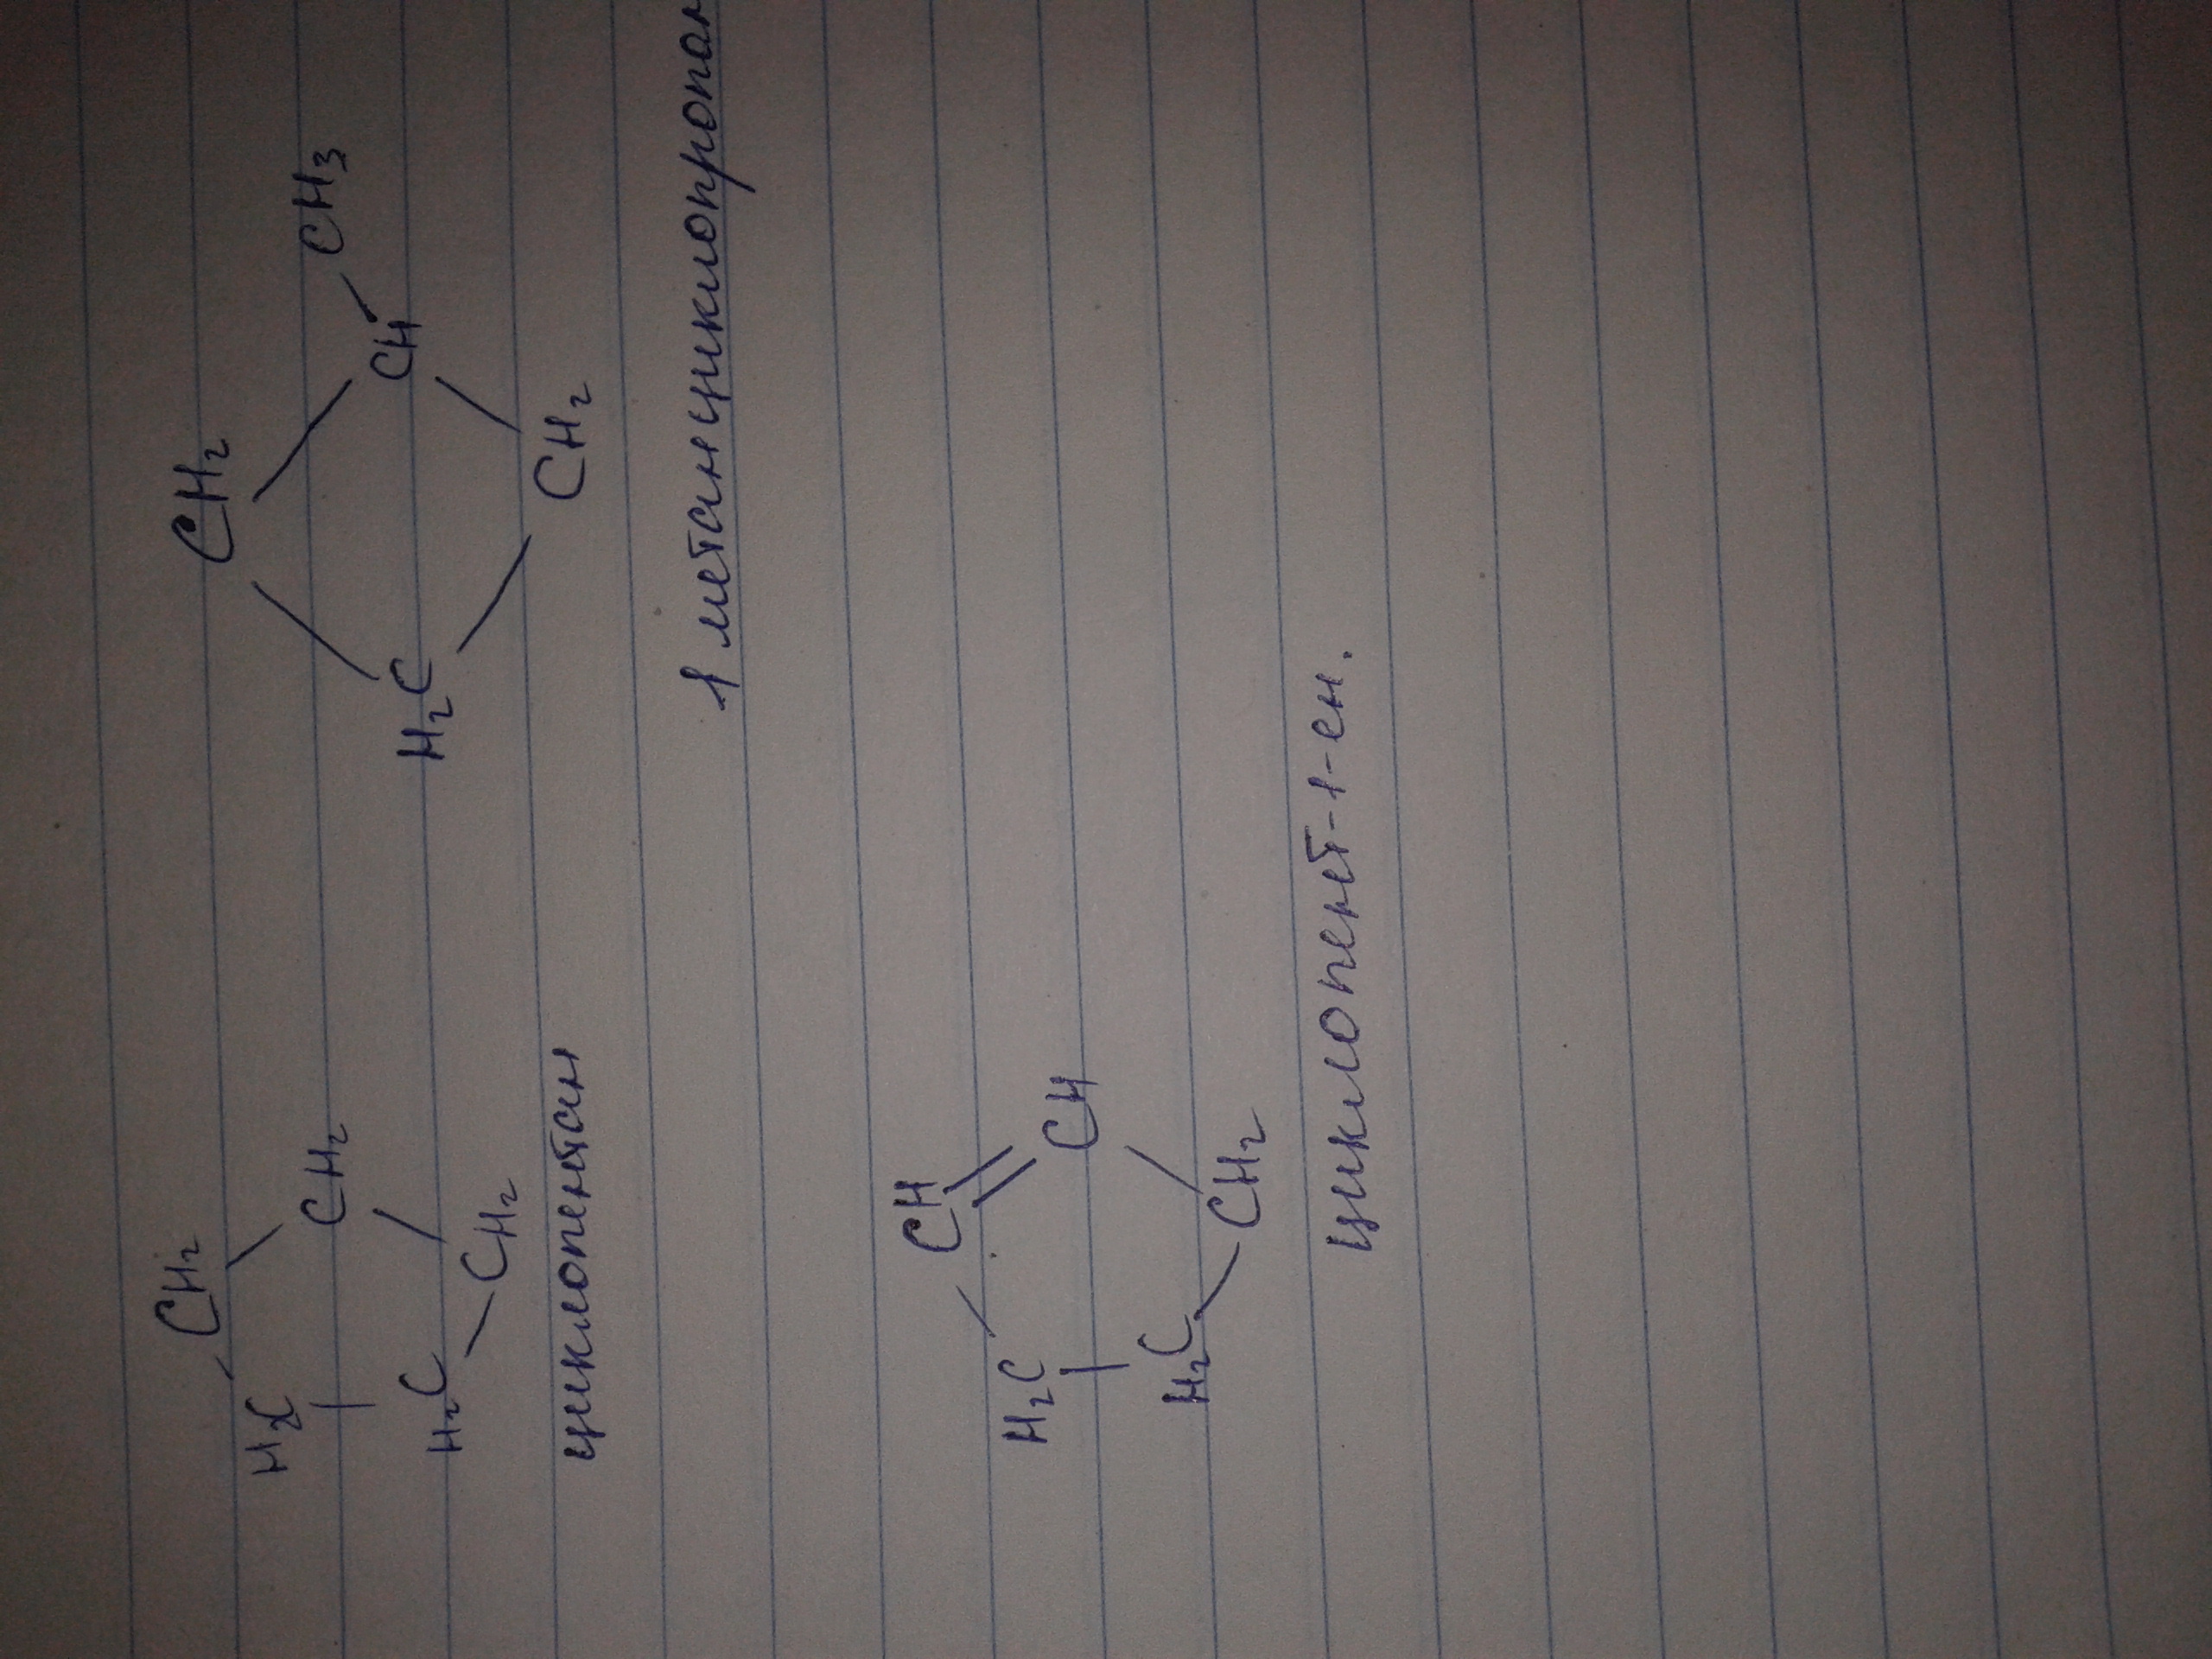 CH₂
H₂C
CH₂
H₂C
CH₂
циклопентан
CH₂
H₂C
CH
CH₃
CH₂
1 метанциклопропан
CH
H₂C
CH
H₂C
CH₂
циклопент-1-ен.